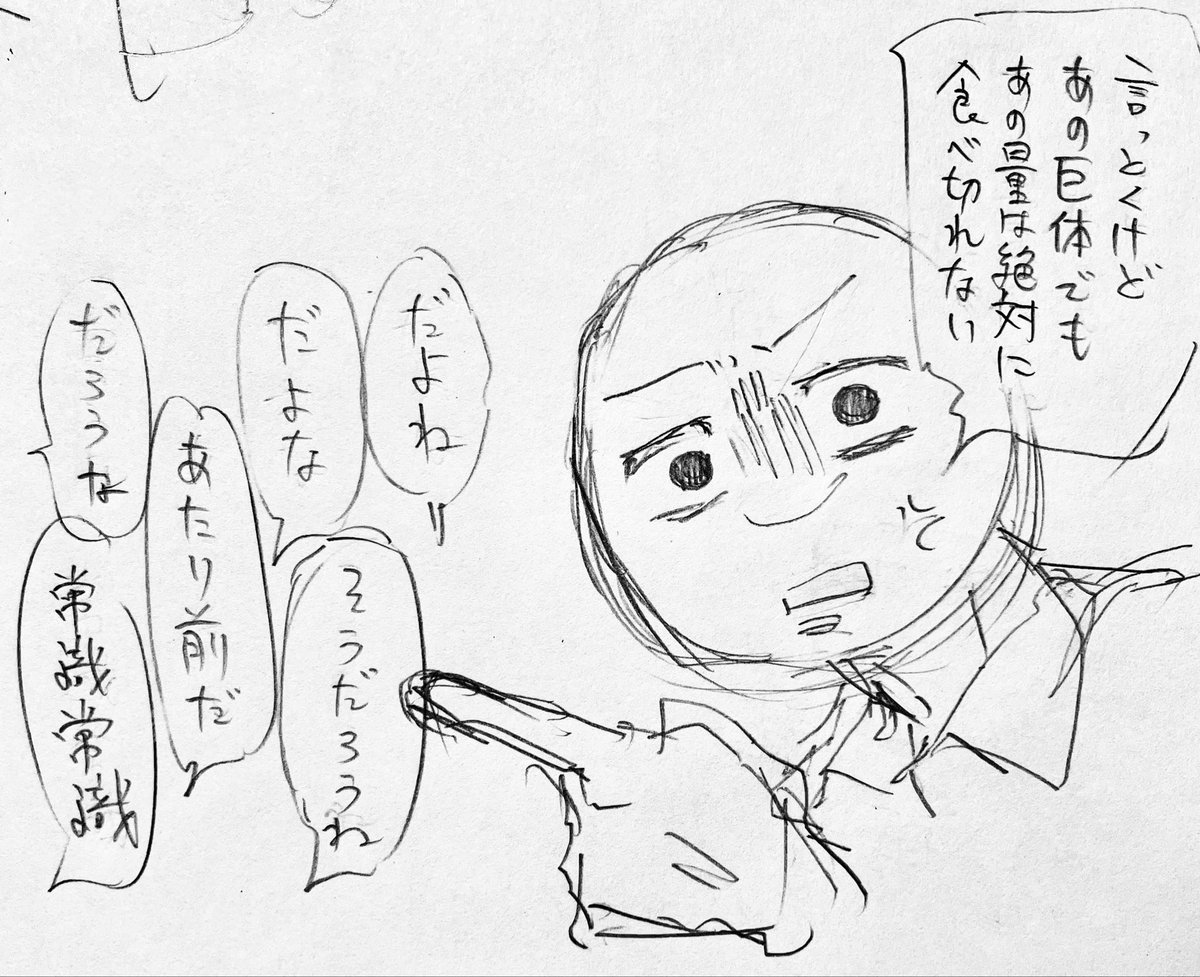 言っとくけど
あの巨体でも
あの量は絶対に
食べ切れない
だよね
だよな
そうだろうね
あたり前だ
だろうな
常識常識